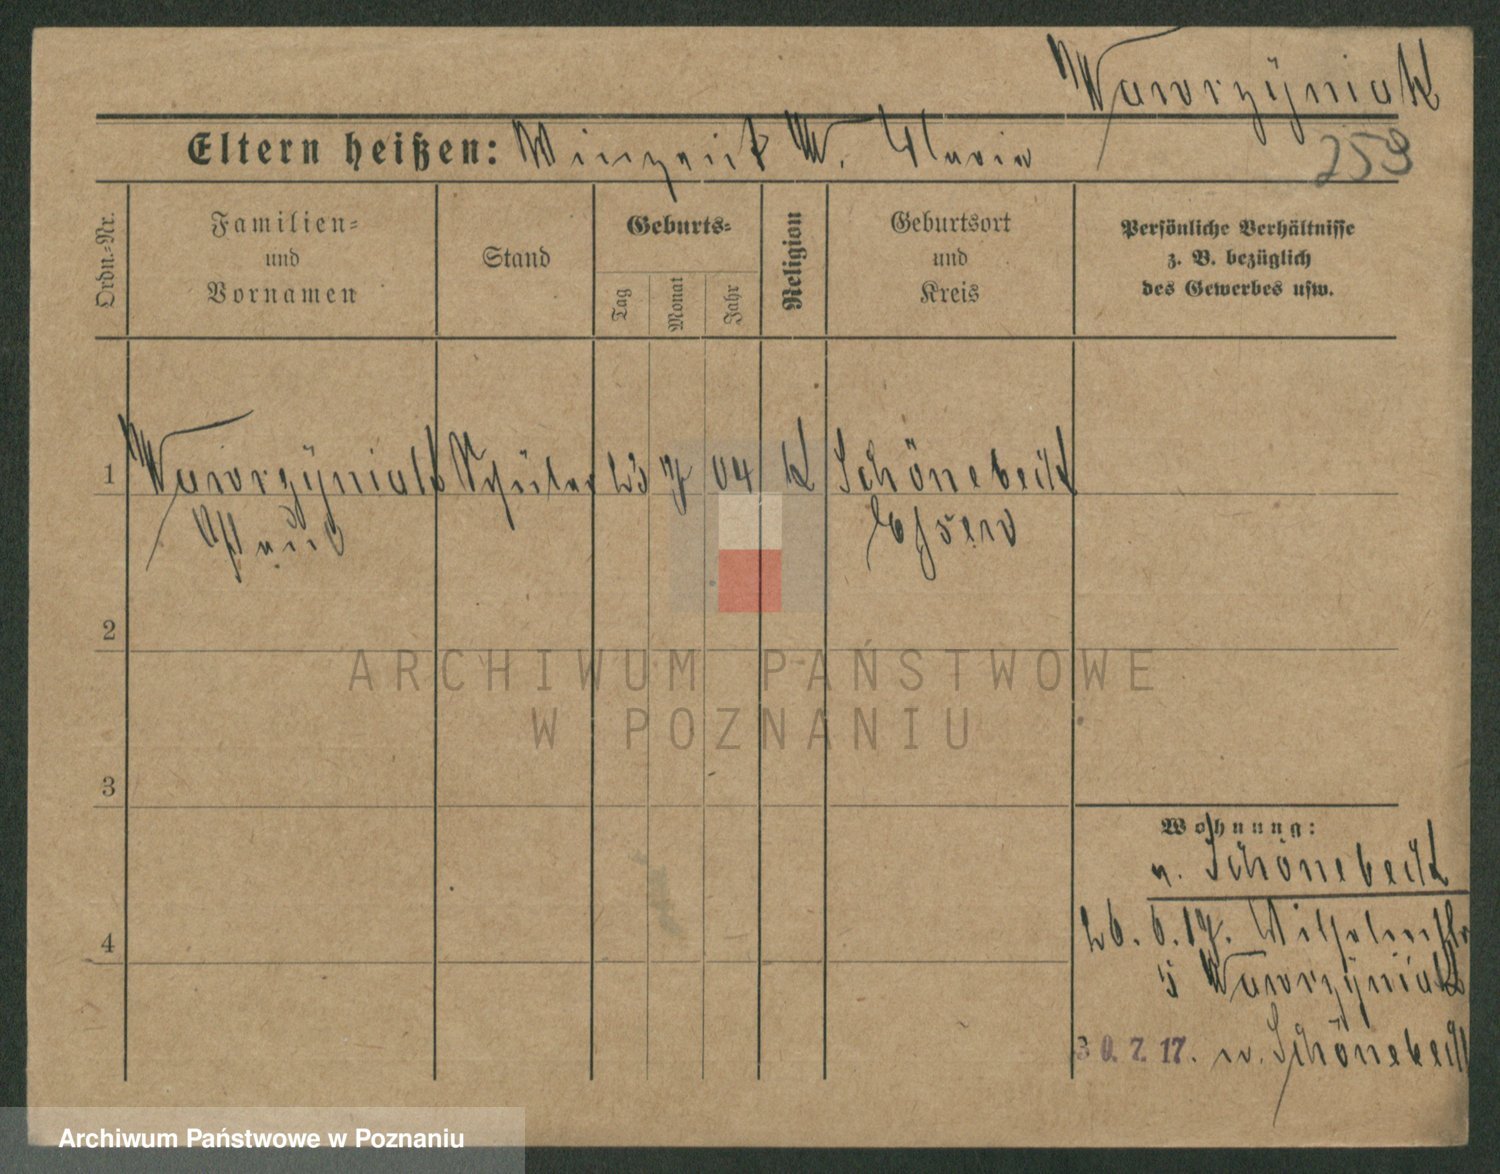 Wawrzÿniak
253
Eltern heißen: Winzent W. Maria
Ordn.-Nr.
Familien- und Vornamen
Stand
Geburts-
Tag
Monat
Jahr
Religion
Geburtsort und Kreis
Persönliche Verhältnisse
z. B. bezüglich
des Gewerbes usw.
1 Wawrzÿniak Schüler 23 7 04 K Schönebeck
Paul Essen
2
ARCHIWUM PAŃSTWOWE
W POZNANIU
3
Wohnung:
n. Schönebeck
4
26. 6. 17. Wilhelmstr
5 Wawrzÿniak
30. 7. 17. n. Schönebeck
Archiwum Państwowe w Poznaniu